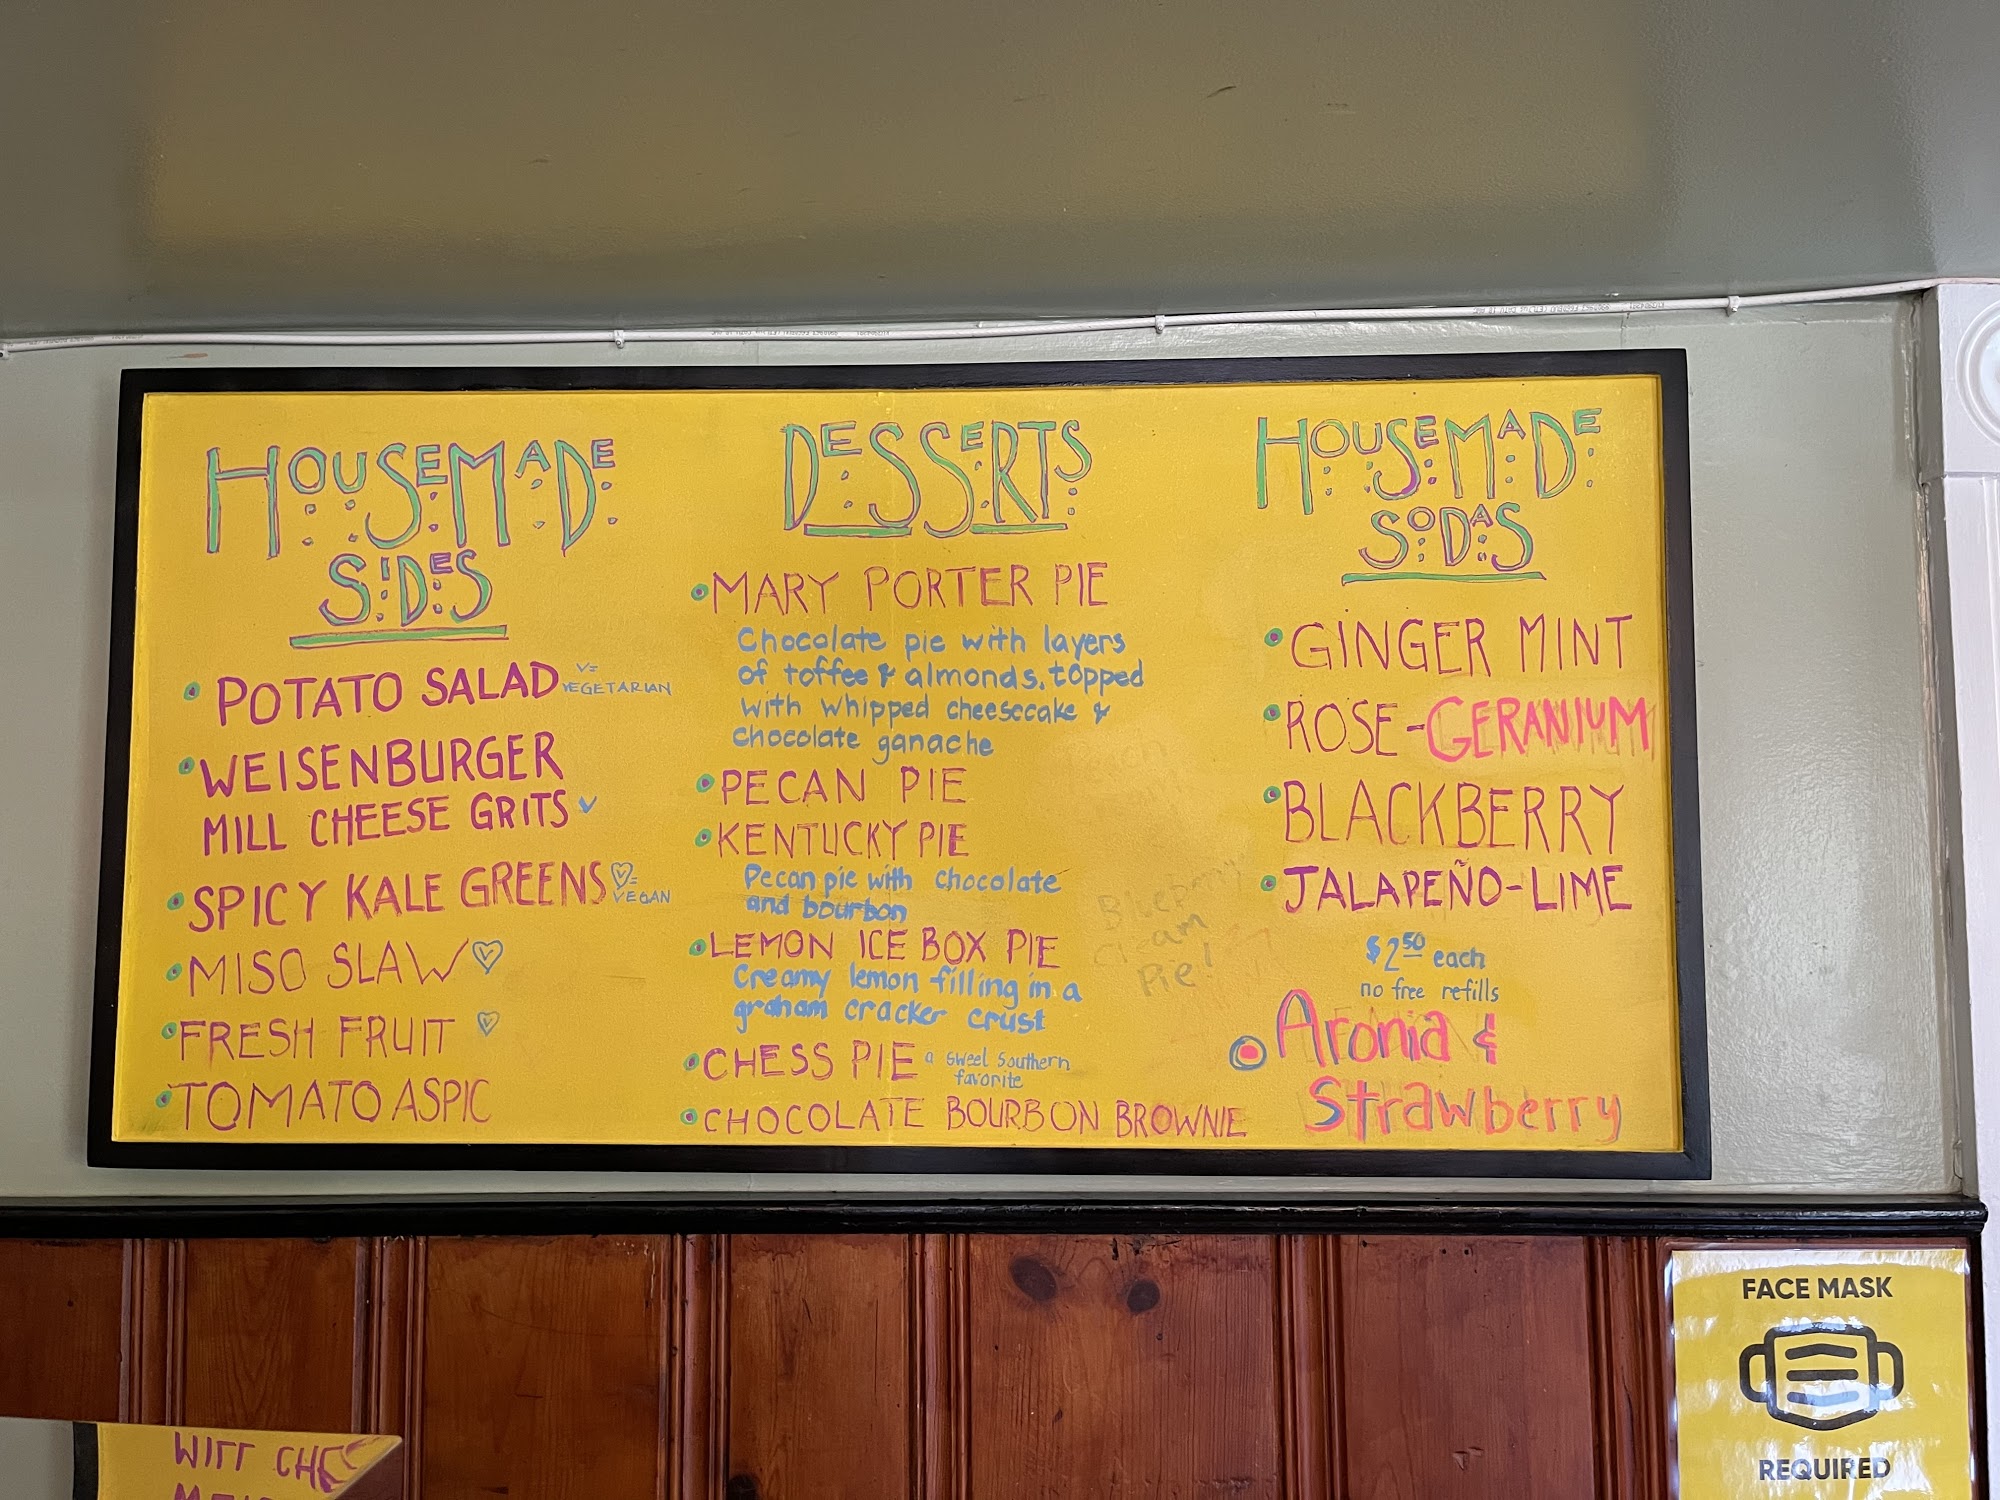 HOUSEMADE
SIDES
• POTATO SALAD V=
VEGETARIAN
• WEISENBURGER
MILL CHEESE GRITS V
• SPICY KALE GREENS V=
VEGAN
• MISO SLAW V
• FRESH FRUIT V
• TOMATO ASPIC
DESSERTS
• MARY PORTER PIE
Chocolate pie with layers
of toffee & almonds, topped
with whipped cheesecake &
chocolate ganache
• PECAN PIE
• KENTUCKY PIE
Pecan pie with chocolate
and bourbon
• LEMON ICE BOX PIE
Creamy lemon filling in a
graham cracker crust
• CHESS PIE a sweet Southern
favorite
• CHOCOLATE BOURBON BROWNIE
Blueberry
Cream
Pie!
HOUSEMADE
SODAS
• GINGER MINT
• ROSE-GERANIUM
• BLACKBERRY
• JALAPEÑO-LIME
$2.50 each
no free refills
• Aronia &
Strawberry
FACE MASK
REQUIRED